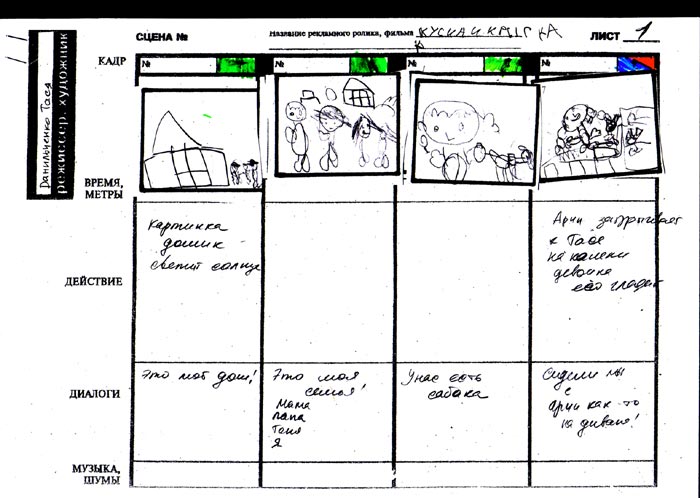 СЦЕНА №
Название рекламного ролика, фильма
ЛИСТ 1
Данильченко Тася
режиссер, художник
КАДР
№
№
№
№
ВРЕМЯ, МЕТРЫ
ДЕЙСТВИЕ
картинка
домик
светит солнце
Арчи запрыгивает
к Тасе
на колени
девочка
его гладит
ДИАЛОГИ
Это мой дом!
Это моя
семья!
Мама
папа
Я
У нас есть
сабака
Сидели мы
с
Арчи как-то
на диване!
МУЗЫКА, ШУМЫ